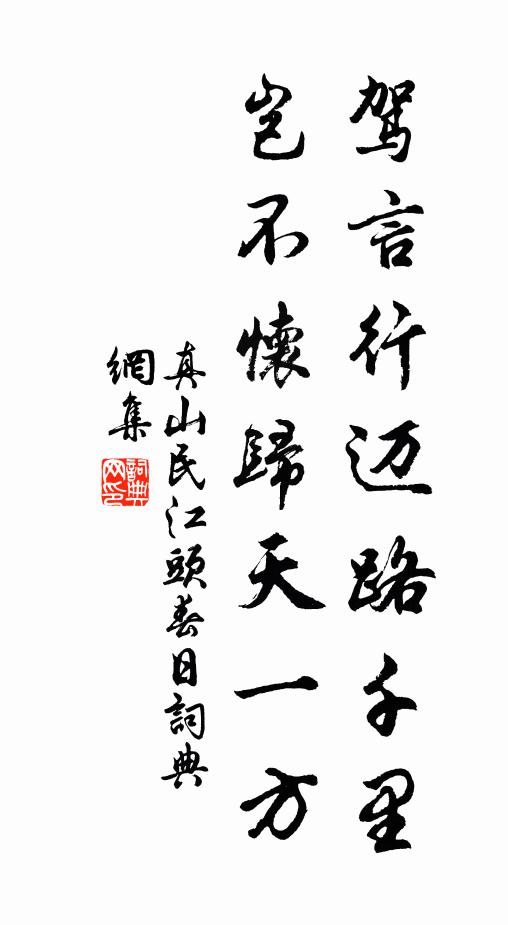 驾言行迈路千里
岂不懷歸天一方
真山民江頭春日詞典
網集
詞典
网印